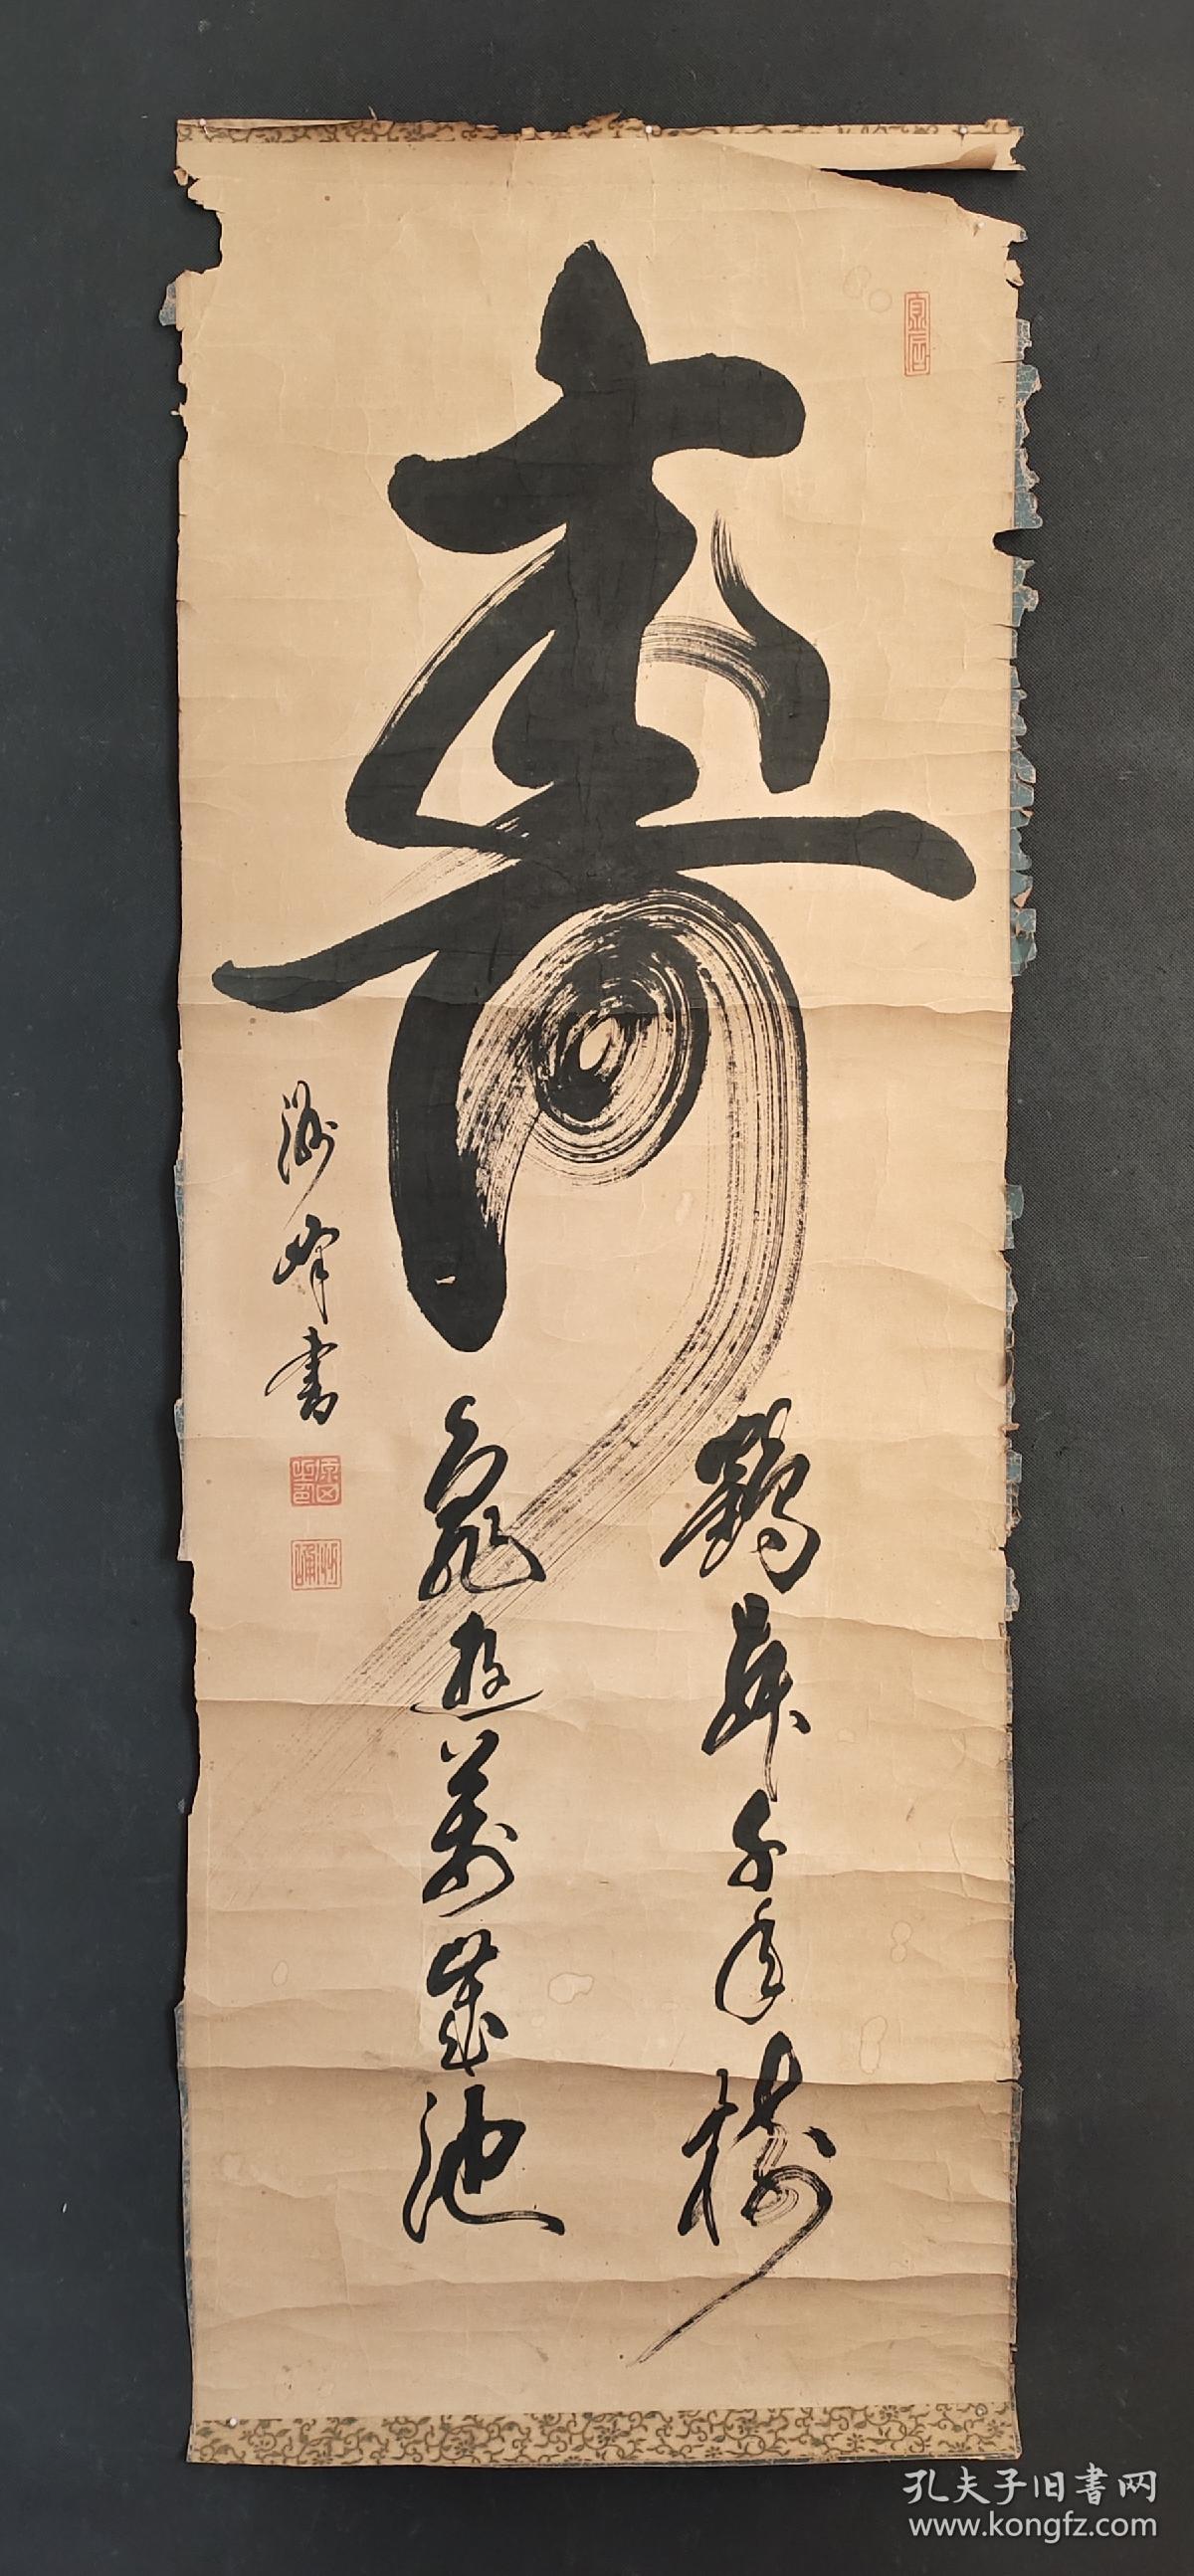 壽
鶴舞千年樹
龜遊萬歲池
峰書
孔夫子旧書网
www.kongfz.com